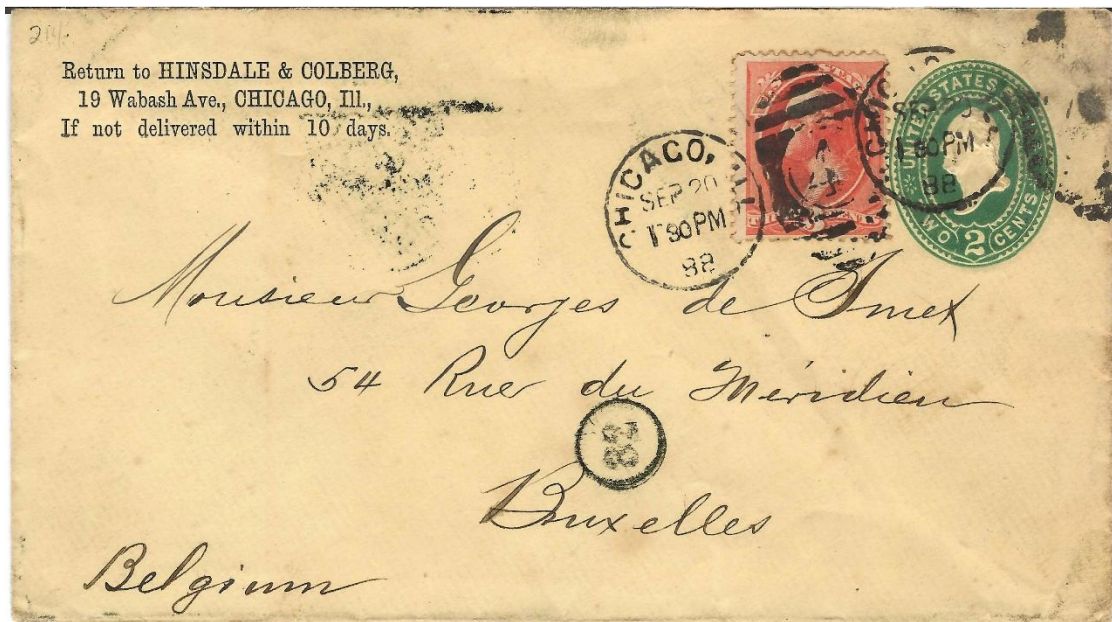 214.
Return to HINSDALE & COLBERG,
19 Wabash Ave., CHICAGO, Ill.,
If not delivered within 10 days.
CHICAGO, ILL
SEP 20
1 30 PM
88
UNITED STATES
TWO 2 CENTS
Monsieur Georges de Smet
54 Rue du Méridien
Bruxelles
Belgium